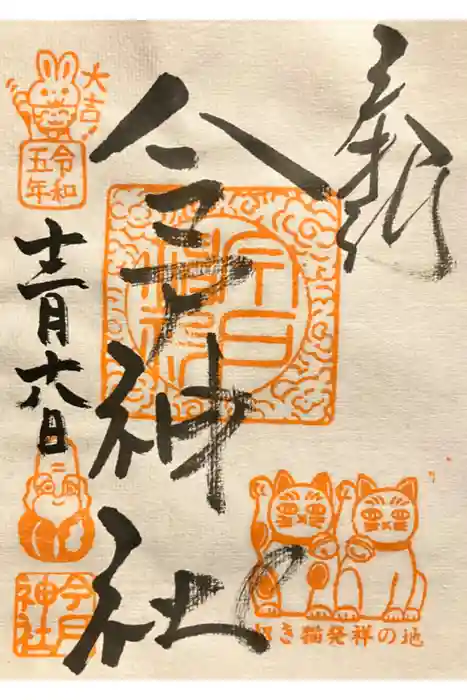 奉拝
今戸神社
大吉!
令和
五年
十二月十六日
今戸
神社
招き猫発祥の地